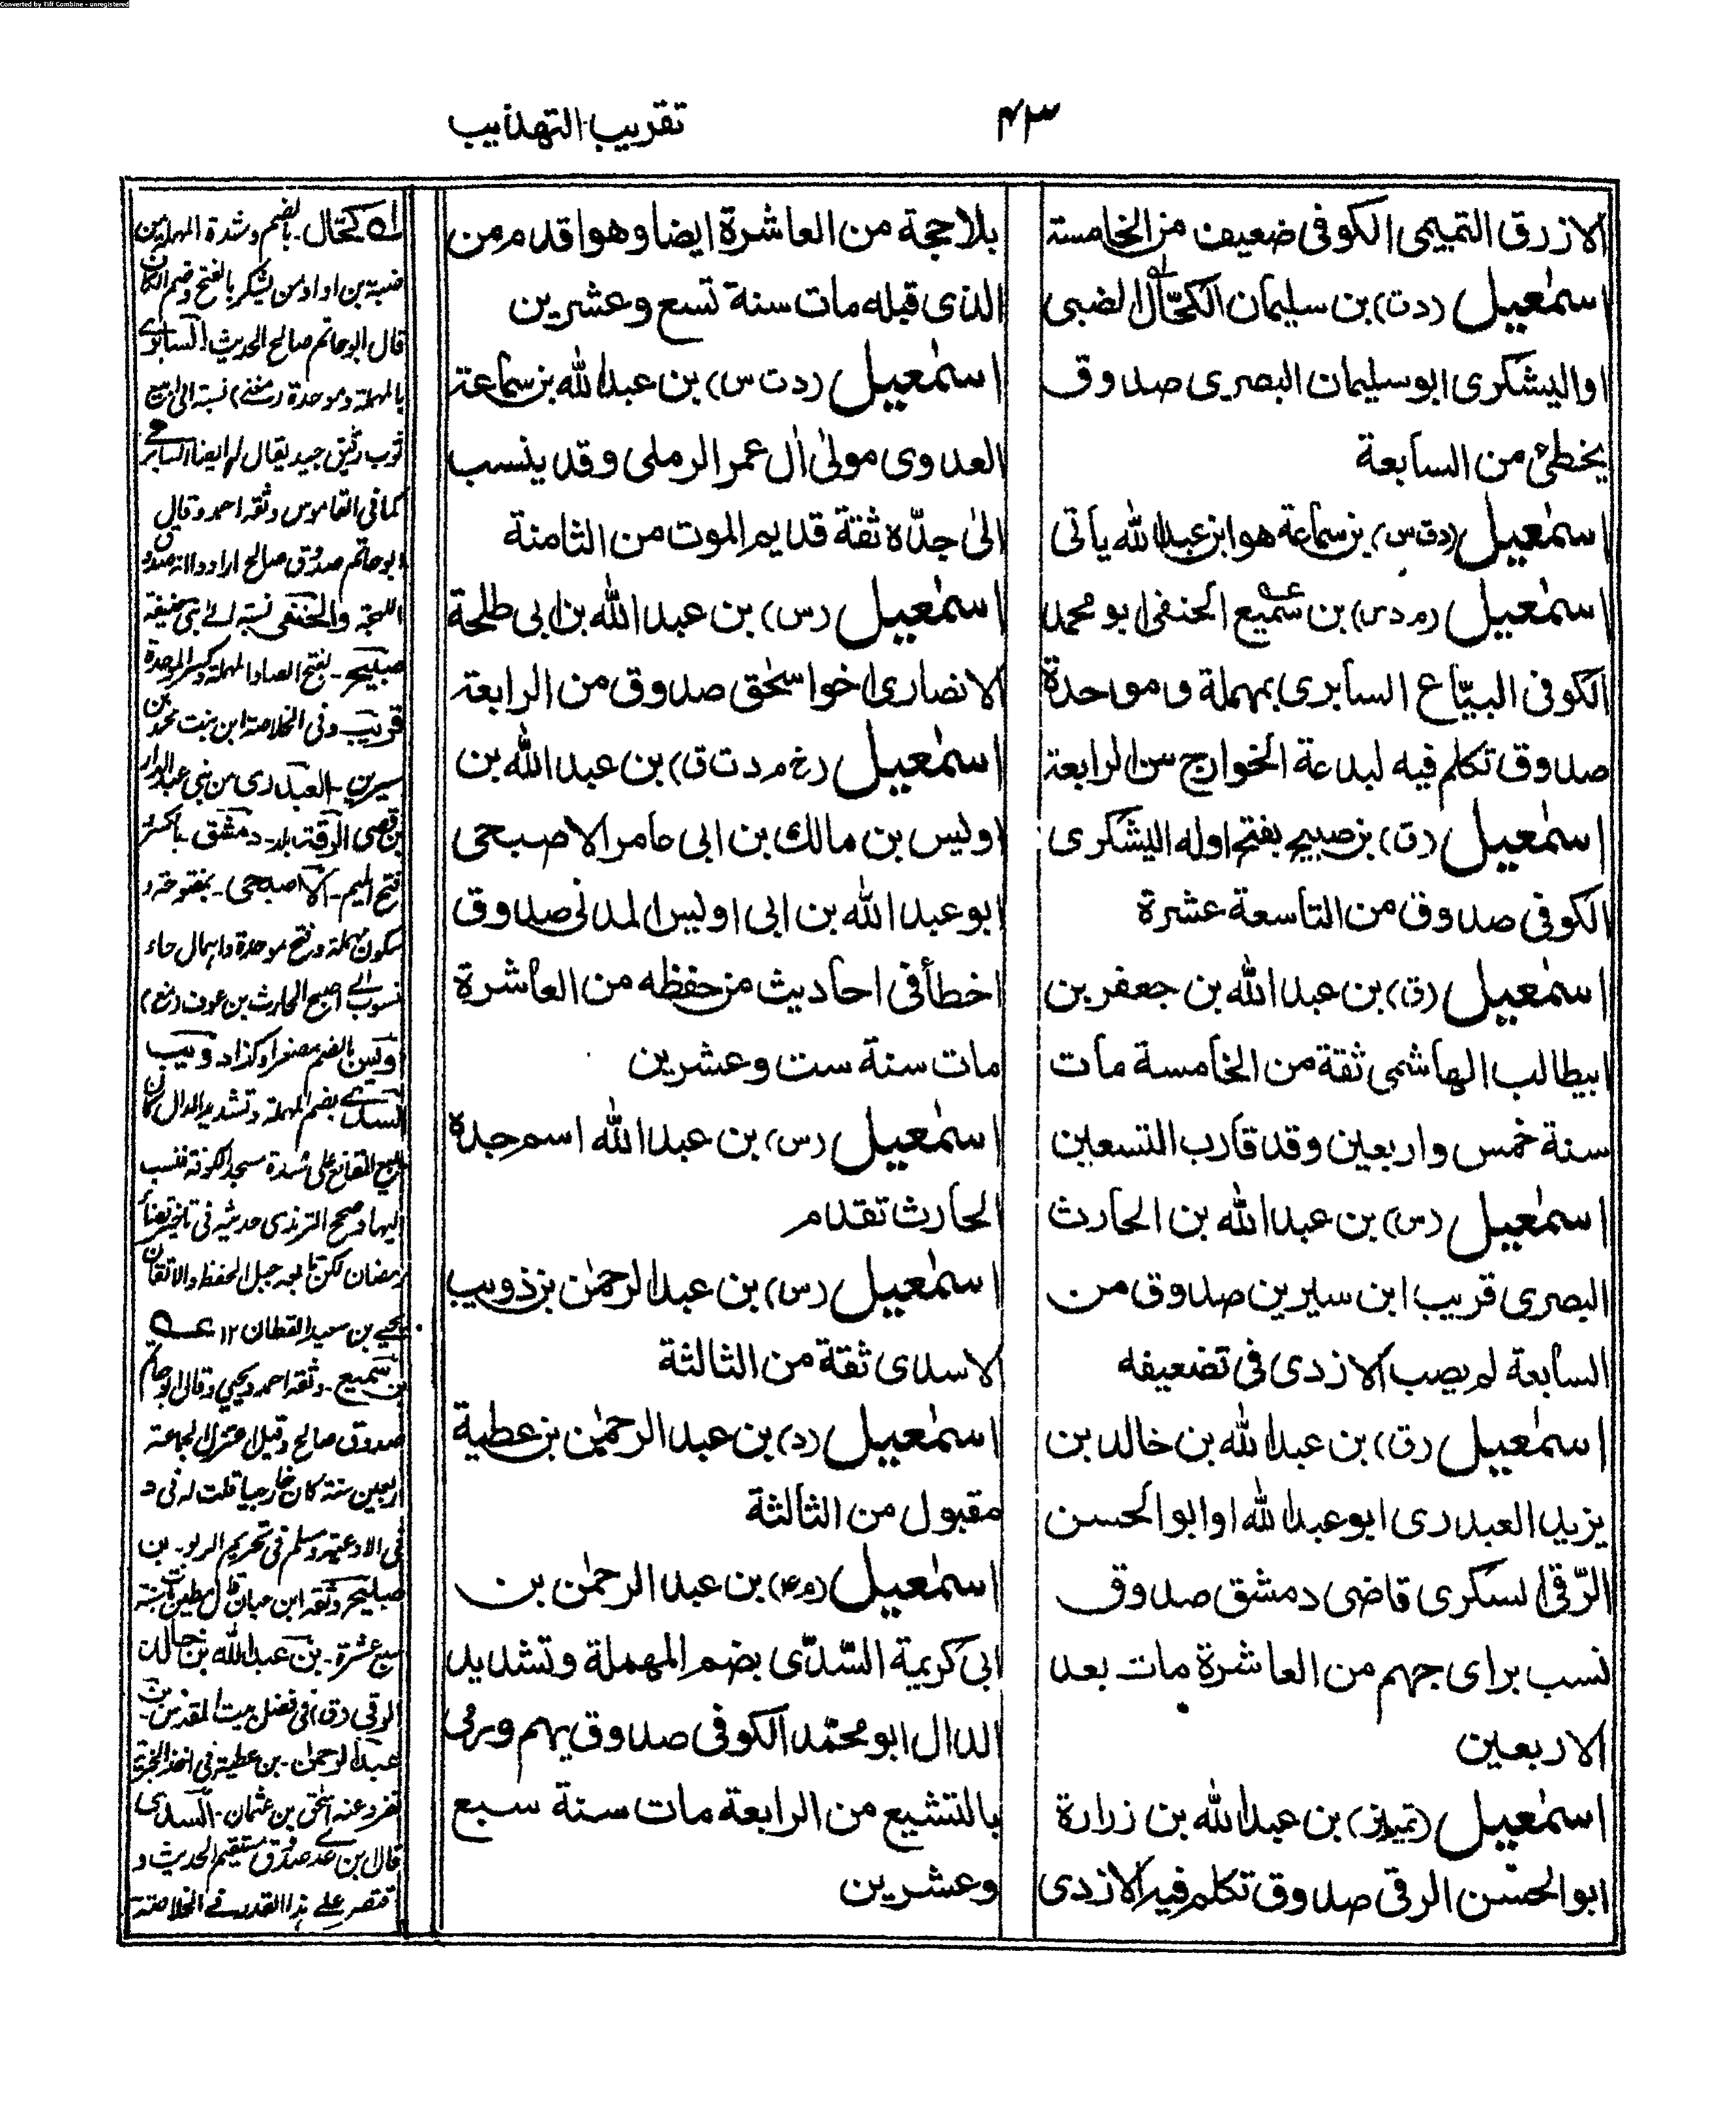 Converted by Tiff Combine - unregistered
۴۳
تقريب التهذيب
الازرق التميمى الكوفى ضعيف من الخامسة
اسمٰعيل (دت) بن سليمان الكحّال الضبى
اواليشكرى ابو سليمان البصرى صدوق
يخطئ من السابعة
اسمٰعيل (دق س) بن سماعة هو ابن عبد الله يأتى
اسمٰعيل (م د س) بن سميع الحنفى ابو محمد
الكوفى البيّاع السابرى بمهملة وموحدة
صدوق تكلم فيه لبدعة الخوارج من الرابعة
اسمٰعيل (ق) بن صبيح بفتح اوله اليشكرى
الكوفى صدوق من التاسعة عشرة
اسمٰعيل (ق) بن عبد الله بن جعفر بن
ابيطالب الهاشمى ثقة من الخامسة مات
سنة خمس واربعين وقد قارب التسعين
اسمٰعيل (س) بن عبد الله بن الحارث
البصرى قريب ابن سيرين صدوق من
السابعة لم يصب الازدى فى تضعيفه
اسمٰعيل (ق) بن عبد الله بن خالد بن
يزيد العبدرى ابو عبد الله او ابو الحسن
الرّقى السكرى قاضى دمشق صدوق
نسب براى جهم من العاشرة مات بعد
الاربعين
اسمٰعيل (تمييز) بن عبد الله بن زرارة
ابو الحسن الرقى صدوق تكلم فيه الازدى
بلا حجة من العاشرة ايضا وهو اقدم من
الذى قبله مات سنة تسع وعشرين
اسمٰعيل (دت س) بن عبد الله بن سماعة
العدوى مولىٰ اٰل عمر الرملى وقد ينسب
الىٰ جدّه ثقة قديم الموت من الثامنة
اسمٰعيل (س) بن عبد الله بن ابى طلحة
الانصارى اخو اسحٰق صدوق من الرابعة
اسمٰعيل (خ م د ت ق) بن عبد الله بن
اويس بن مالك بن ابى عامر الاصبحى
ابو عبد الله بن ابى اويس المدنى صدوق
اخطأ فى احاديث من حفظه من العاشرة
مات سنة ست وعشرين
اسمٰعيل (س) بن عبد الله اسم جده
الحارث تقدم
اسمٰعيل (س) بن عبد الرحمٰن بن ذويب
الاسدى ثقة من الثالثة
اسمٰعيل (د) بن عبد الرحمٰن بن عطية
مقبول من الثالثة
اسمٰعيل (م۴) بن عبد الرحمٰن بن
ابى كريمة السّدّى بضم المهملة وتشديد
الدال ابو محمّد الكوفى صدوق يهم ورمى
بالتشيع من الرابعة مات سنة سبع
وعشرين
كحّال - بالضم وشدة المهملتين
ضبة بن اد او من يشكر بالفتح وضم الكاف
قال ابو حاتم صالح الحديث السابرى
بالمهملة وموحدة (مغنى) نسبة الى بيع
ثوب رقيق جيد يقال له ايضا السابرى
كما فى القاموس وثقه احمد وقال
ابو حاتم صدوق صالح
اللهجة والحنفى نسبة الى بنى حنيفة
صبيح - بفتح الصاد المهملة وكسر الموحدة
قريب وفى الخلاصة ابن بنت محمد بن
سيرين - العبدرى من بنى عبد الدار
بن قصى الرقة بلد - دمشق - بالكسر
فتح الميم - الاصبحى - بمفتوحة و
سكون مهملة وفتح موحدة واهمال حاء
منسوب الى اصبح الحارث بن عوف (مغ)
اويس بالضم مصغرا وكذا ذويب
السدى بضم المهملة وتشديد الدال كان
يبيع المقانع على سدة مسجد الكوفة فنسب
اليها وصحح الترمذى حديثه فى تاخير قضاء
رمضان لكن تابعه جبل الحفظ والاتقان
يحيى بن سعيد القطان ۱۲ عــه
بن سميع - وثقه احمد ويحيى وقال ابو حاتم
صدوق صالح وقيل اعتزل الجماعة
اربعين سنة كان خارجيا قلت له فى د
فى الادعية ومسلم فى تحريم الربو - بن
صبيح وثقه ابن حبان قال مطين مات سنة
سبع عشرة - بن عبد الله بن خالد
الرقى (ق) فى فضل بيت المقدس - بن
عبد الرحمٰن - بن عطية فى اخذ الجزية
تفرد عنه اسحٰق بن عثمان - السدى
قال بن عدى صدوق مستقيم الحديث و
اقتصر على هذا القدر فى الخلاصة